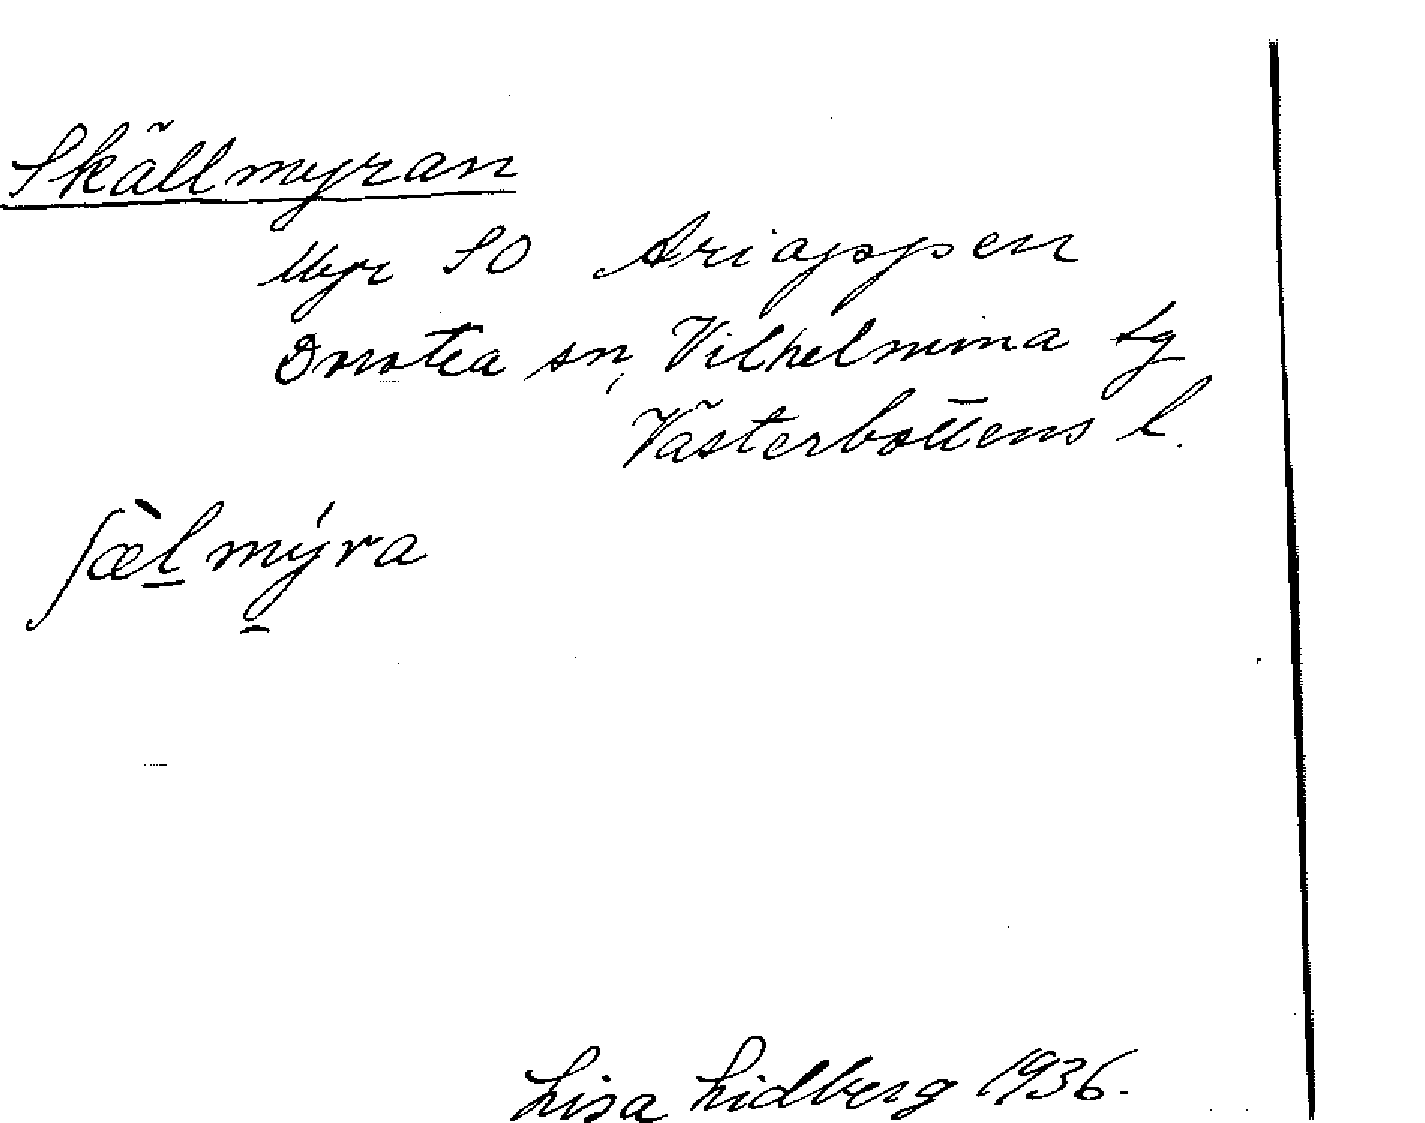 Skällmyran
Myr SO Ariappen
Dorotea sn, Vilhelmina tg
Västerbottens l.
ʃæ̀l mýra
Lisa Lidberg 1936.